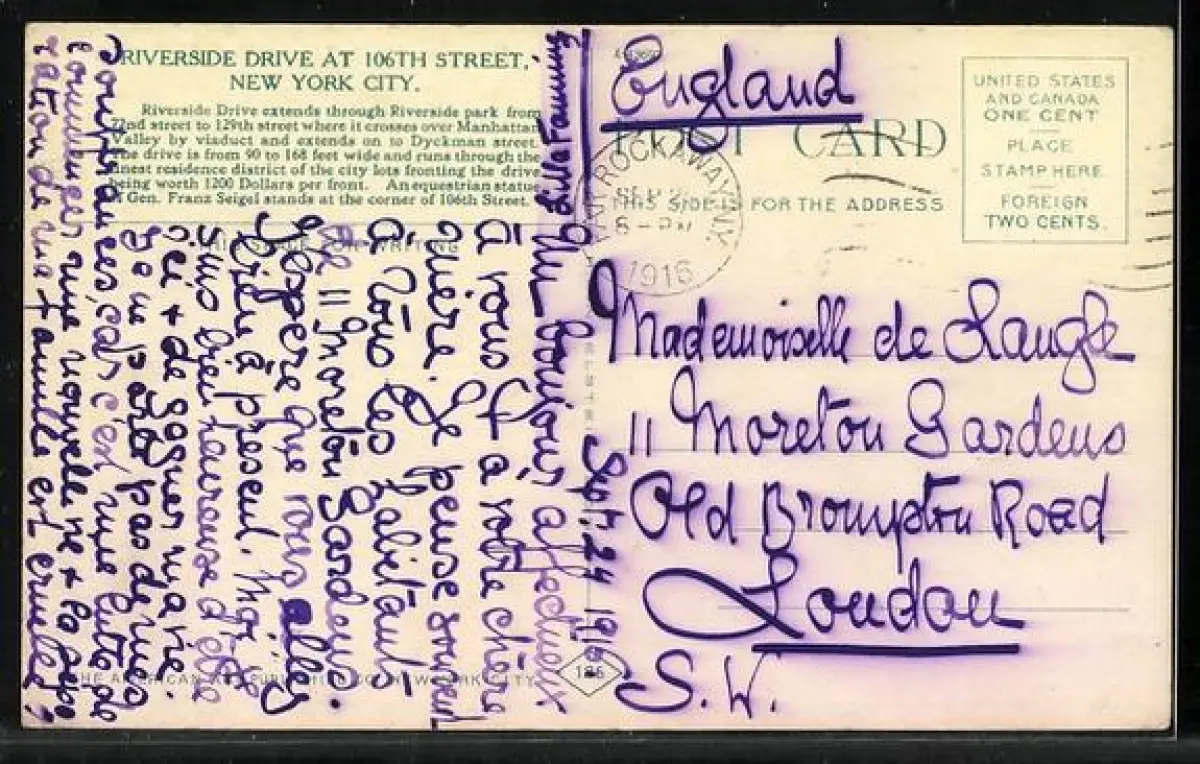 RIVERSIDE DRIVE AT 106TH STREET,
NEW YORK CITY.
Riverside Drive extends through Riverside park from
72nd street to 129th street where it crosses over Manhattan
Valley by viaduct and extends on to Dyckman street.
The drive is from 90 to 168 feet wide and runs through the
finest residence district of the city lots fronting the drive
being worth 1200 Dollars per front. An equestrian statue
of Gen. Franz Seigel stands at the corner of 106th Street.
Sept. 24 1916
affectueux
à vous et à votre chère
mère. Je pense souvent
à tous les habitants
de 11 Moreton Gardens.
J'espère que vous allez
bien à présent. Moi je
suis bien heureuse d'être
ici & de soigner marie.
Je ne parle pas de mes
souffrances, car c'est une lutte de
commencer une nouvelle vie & la
de ma famille est cruelle;
THE AMERICAN ART PUBLISHING CO. NEW YORK CITY
136
England
POST CARD
THIS SIDE IS FOR THE ADDRESS
FAR ROCKAWAY, N.Y.
8 - PM
1916
UNITED STATES
AND CANADA
ONE CENT
PLACE
STAMP HERE
FOREIGN
TWO CENTS.
Mademoiselle de Laugle
11 Moreton Gardens
Old Brompton Road
London
S. W.